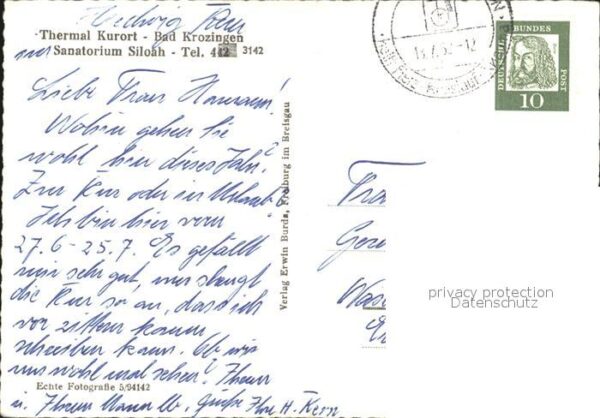 Hedwig Kern
Thermal Kurort - Bad Krozingen
Sanatorium Siloah - Tel. 442 3142
Liebe Frau Hamann!
Wohin gehen Sie
wohl hier dieses Jahr?
Zur Kur oder in Urlaub?
Ich bin hier vom
27.6 - 25.7. Es gefällt
mir sehr gut, nur strengt
die Kur so an, dass ich
vor zittern kaum
schreiben kann. Ob wir
uns wohl mal sehen? Ihnen
Echte Fotografie 5/94142
u. Ihrem Mann lb. Grüße Ihre H. Kern
Verlag Erwin Burda, Freiburg im Breisgau
DEUTSCHE BUNDES POST
10
Fra
privacy protection
Datenschutz